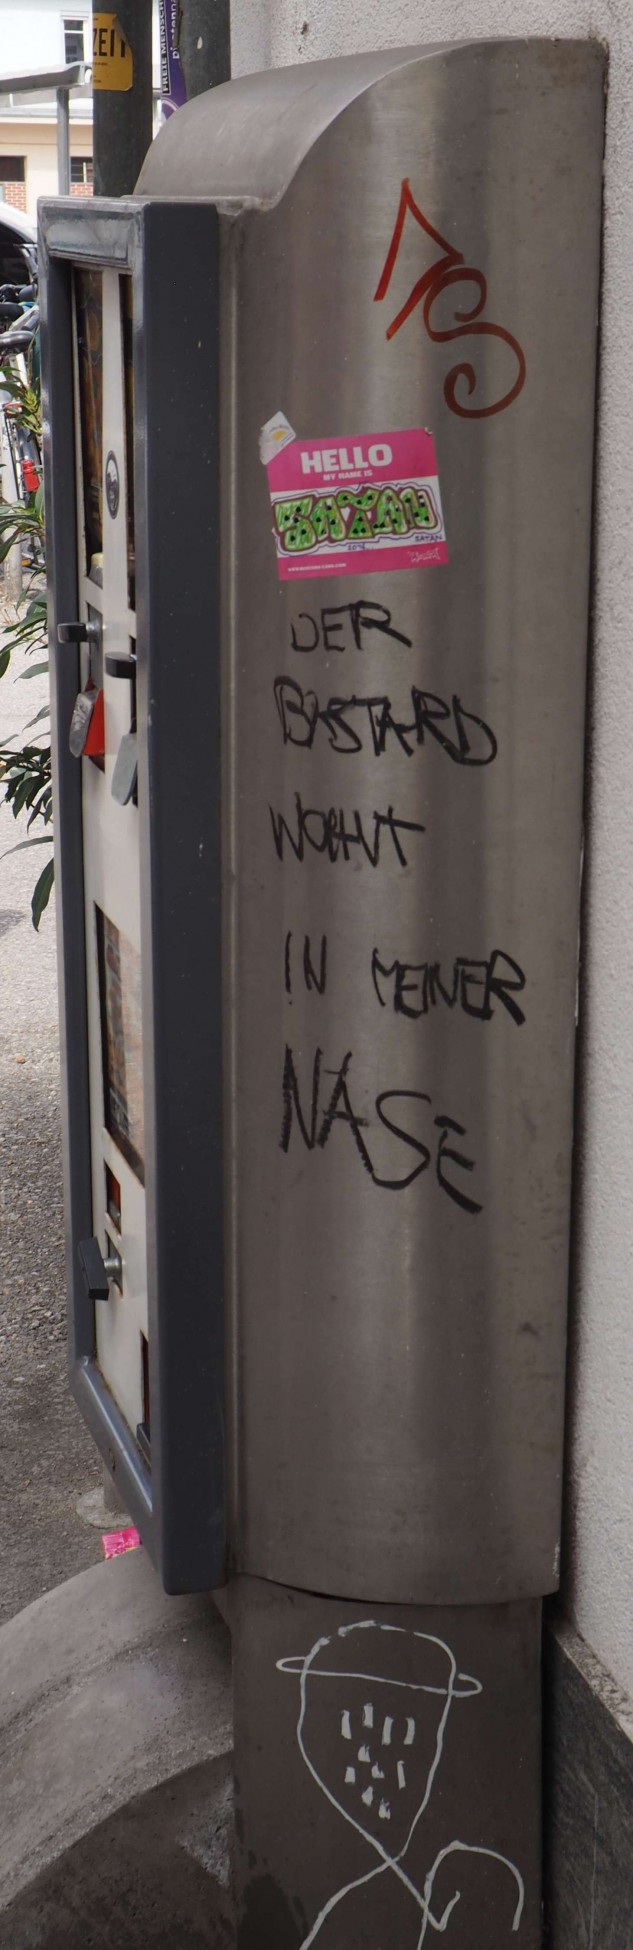 ZEIT
FREIE MENSCHEN
HELLO
MY NAME IS
SATAN
SATAN
DER
BASTARD
WOHNT
IN MEINER
NASE